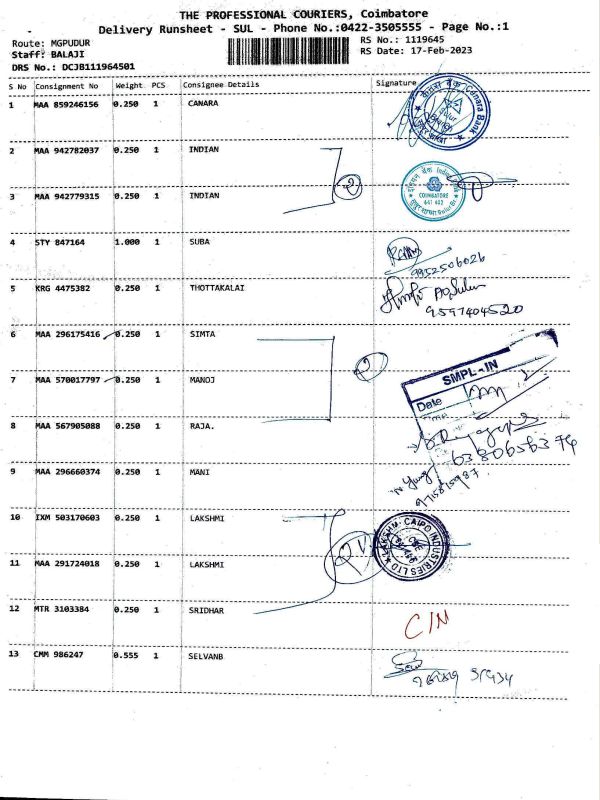 THE PROFESSIONAL COURIERS, Coimbatore
Delivery Runsheet - SUL - Phone No.:0422-3505555 - Page No.:1
Route: MGPUDUR
RS No.: 1119645
Staff: BALAJI
RS Date: 17-Feb-2023
DRS No.: DCJB111964501
S No Consignment No Weight PCS Consignee Details Signature
1 MAA 859246156 0.250 1 CANARA
Canara Bank
2 MAA 942782037 0.250 1 INDIAN
2
3 MAA 942779315 0.250 1 INDIAN
COIMBATORE
641 402
4 STY 847164 1.000 1 SUBA
9952506026
5 KRG 4475382 0.250 1 THOTTAKALAI
9597404520
6 MAA 296175416 0.250 1 SIMTA
2
7 MAA 570017797 0.250 1 MANOJ
SMPL-IN
Date
8 MAA 567905088 0.250 1 RAJA.
9 MAA 296660374 0.250 1 MANI
10 IXM 503170603 0.250 1 LAKSHMI
LAKSHMI CAIPO INDUSTRIES LTD
11 MAA 291724018 0.250 1 LAKSHMI
12 MTR 3103384 0.250 1 SRIDHAR
C/N
13 CMM 986247 0.555 1 SELVANB